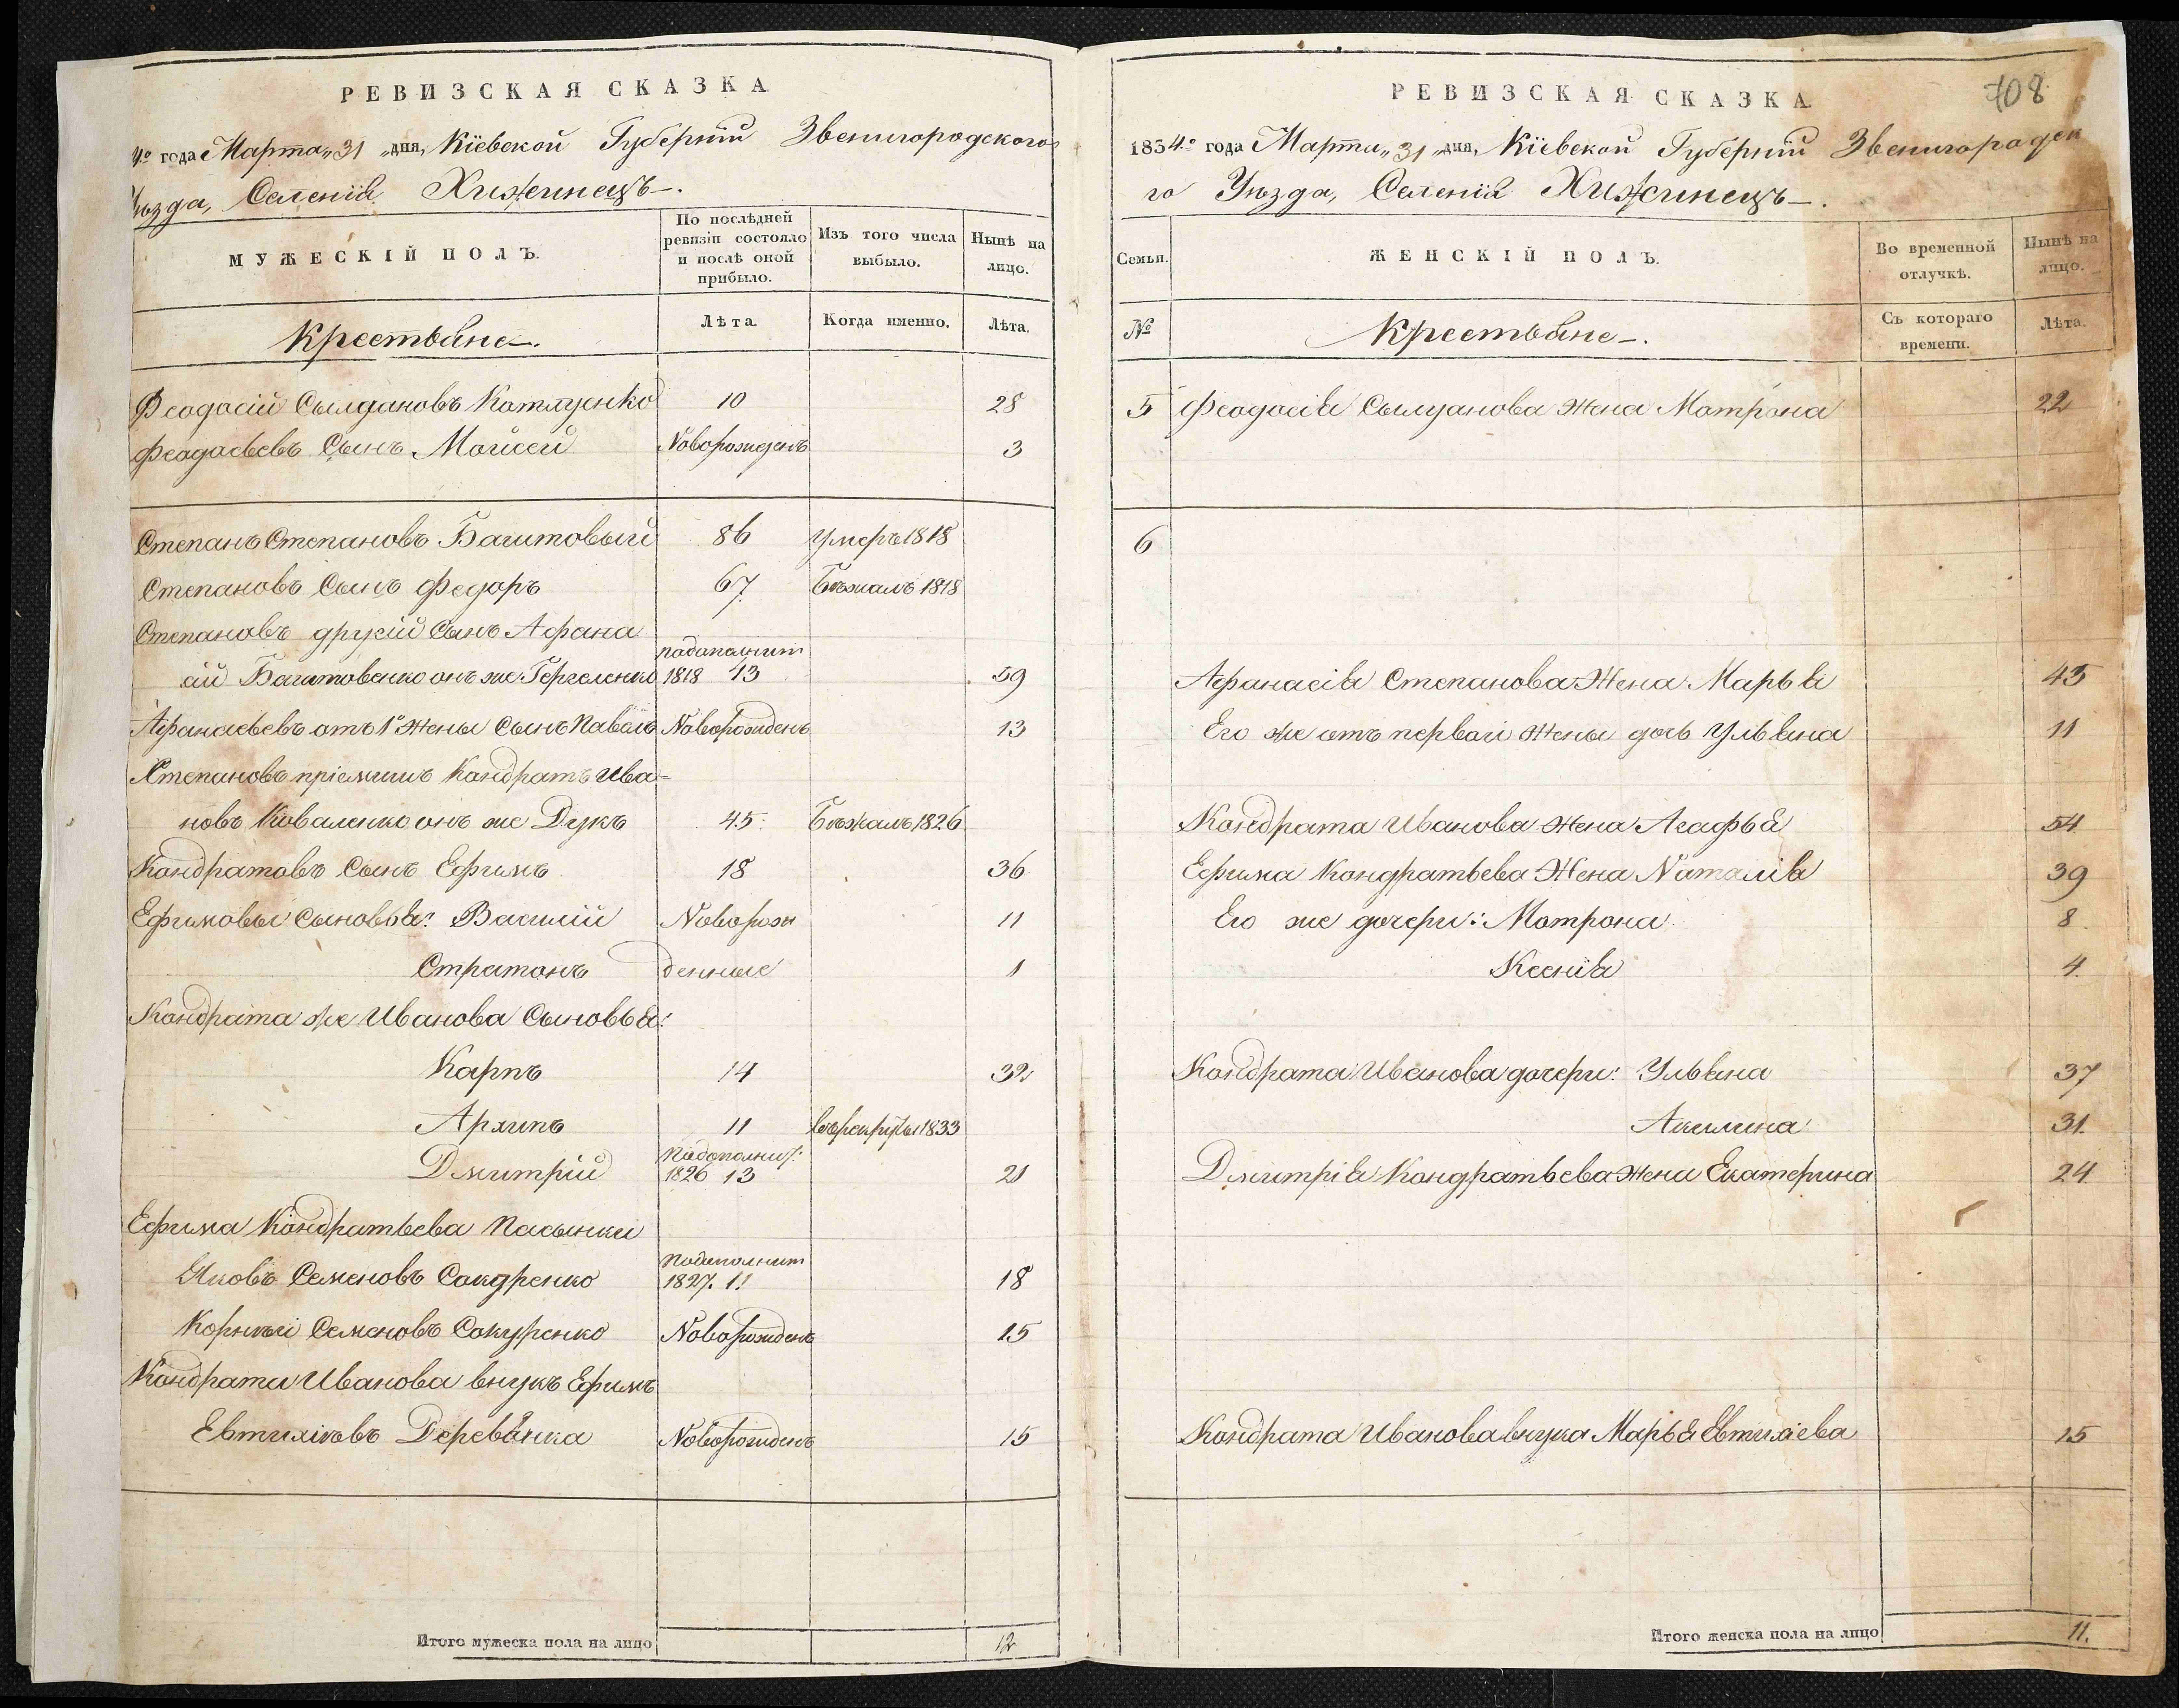 РЕВИЗСКАЯ СКАЗКА
4го года Марта „31„ дня, Кіевской Губерніи Звенигородского
Уѣзда, Селенія Хижинецъ.
МУЖЕСКІЙ ПОЛЪ.
По послѣдней ревизіи состояло и послѣ оной прибыло.
Изъ того числа выбыло.
Нынѣ на лицо.
Крестьяне.
Лѣта.
Когда именно.
Лѣта.
Феодосій Силуановъ 10 28
Феодосьевъ Сынъ Мойсей Новорожденъ 3
Степанъ Степановъ Багитовый 86 Умеръ 1818
Степановъ Сынъ Федоръ 67 Бѣжалъ 1818
Степановъ другій Сынъ Афана
сій Багитовенко онъ же Гергеленко подополнит 1818 43 59
Афанасьевъ отъ 1й Жены Сынъ Павелъ Новорожденъ 13
Степановъ пріемышъ Кондратъ Ива=
новъ Коваленко онъ же Дукъ 45 Бѣжалъ 1826
Кондратовъ Сынъ Ефимъ 18 36
Ефимовы Сыновья: Василій Новорож 11
Стратонъ денные 1
Кондрата же Иванова Сыновья:
Карпъ 14 32
Архипъ 11 въ рекруты 1833
Дмитрій подополнит: 1826 13 21
Ефима Кондратьева Пасынки
Яковъ Семеновъ подополнит 1827. 11 18
Корнѣй Семеновъ Сокуренко Новорожденъ 15
Кондрата Иванова внукъ Ефимъ
Евтихіевъ Деревянка Новорожденъ 15
Итого мужеска пола на лицо 12
РЕВИЗСКАЯ СКАЗКА
708
1834го года Марта „31„ дня, Кіевской Губерніи Звенигородск
го Уѣзда, Селенія Хижинецъ.
Семьи.
ЖЕНСКІЙ ПОЛЪ.
Во временной отлучкѣ.
Нынѣ на лицо.
№
Крестьяне.
Съ котораго времени.
Лѣта.
5 Феодосія Силуанова Жена Матрона 22
6
Афанасія Степанова Жена Марья 43
Его же отъ первой Жены дочь Ульяна 11
Кондрата Иванова Жена Агафья 54
Ефима Кондратьева Жена Наталія 39
Его же дочери: Матрона 8
Ксенія 4
Кондрата Иванова дочери: Ульяна 37
Акилина 31.
Дмитрія Кондратьева Жена Екатерина 24
Кондрата Иванова внука Марья Евтихіева 15
Итого женска пола на лицо 11.